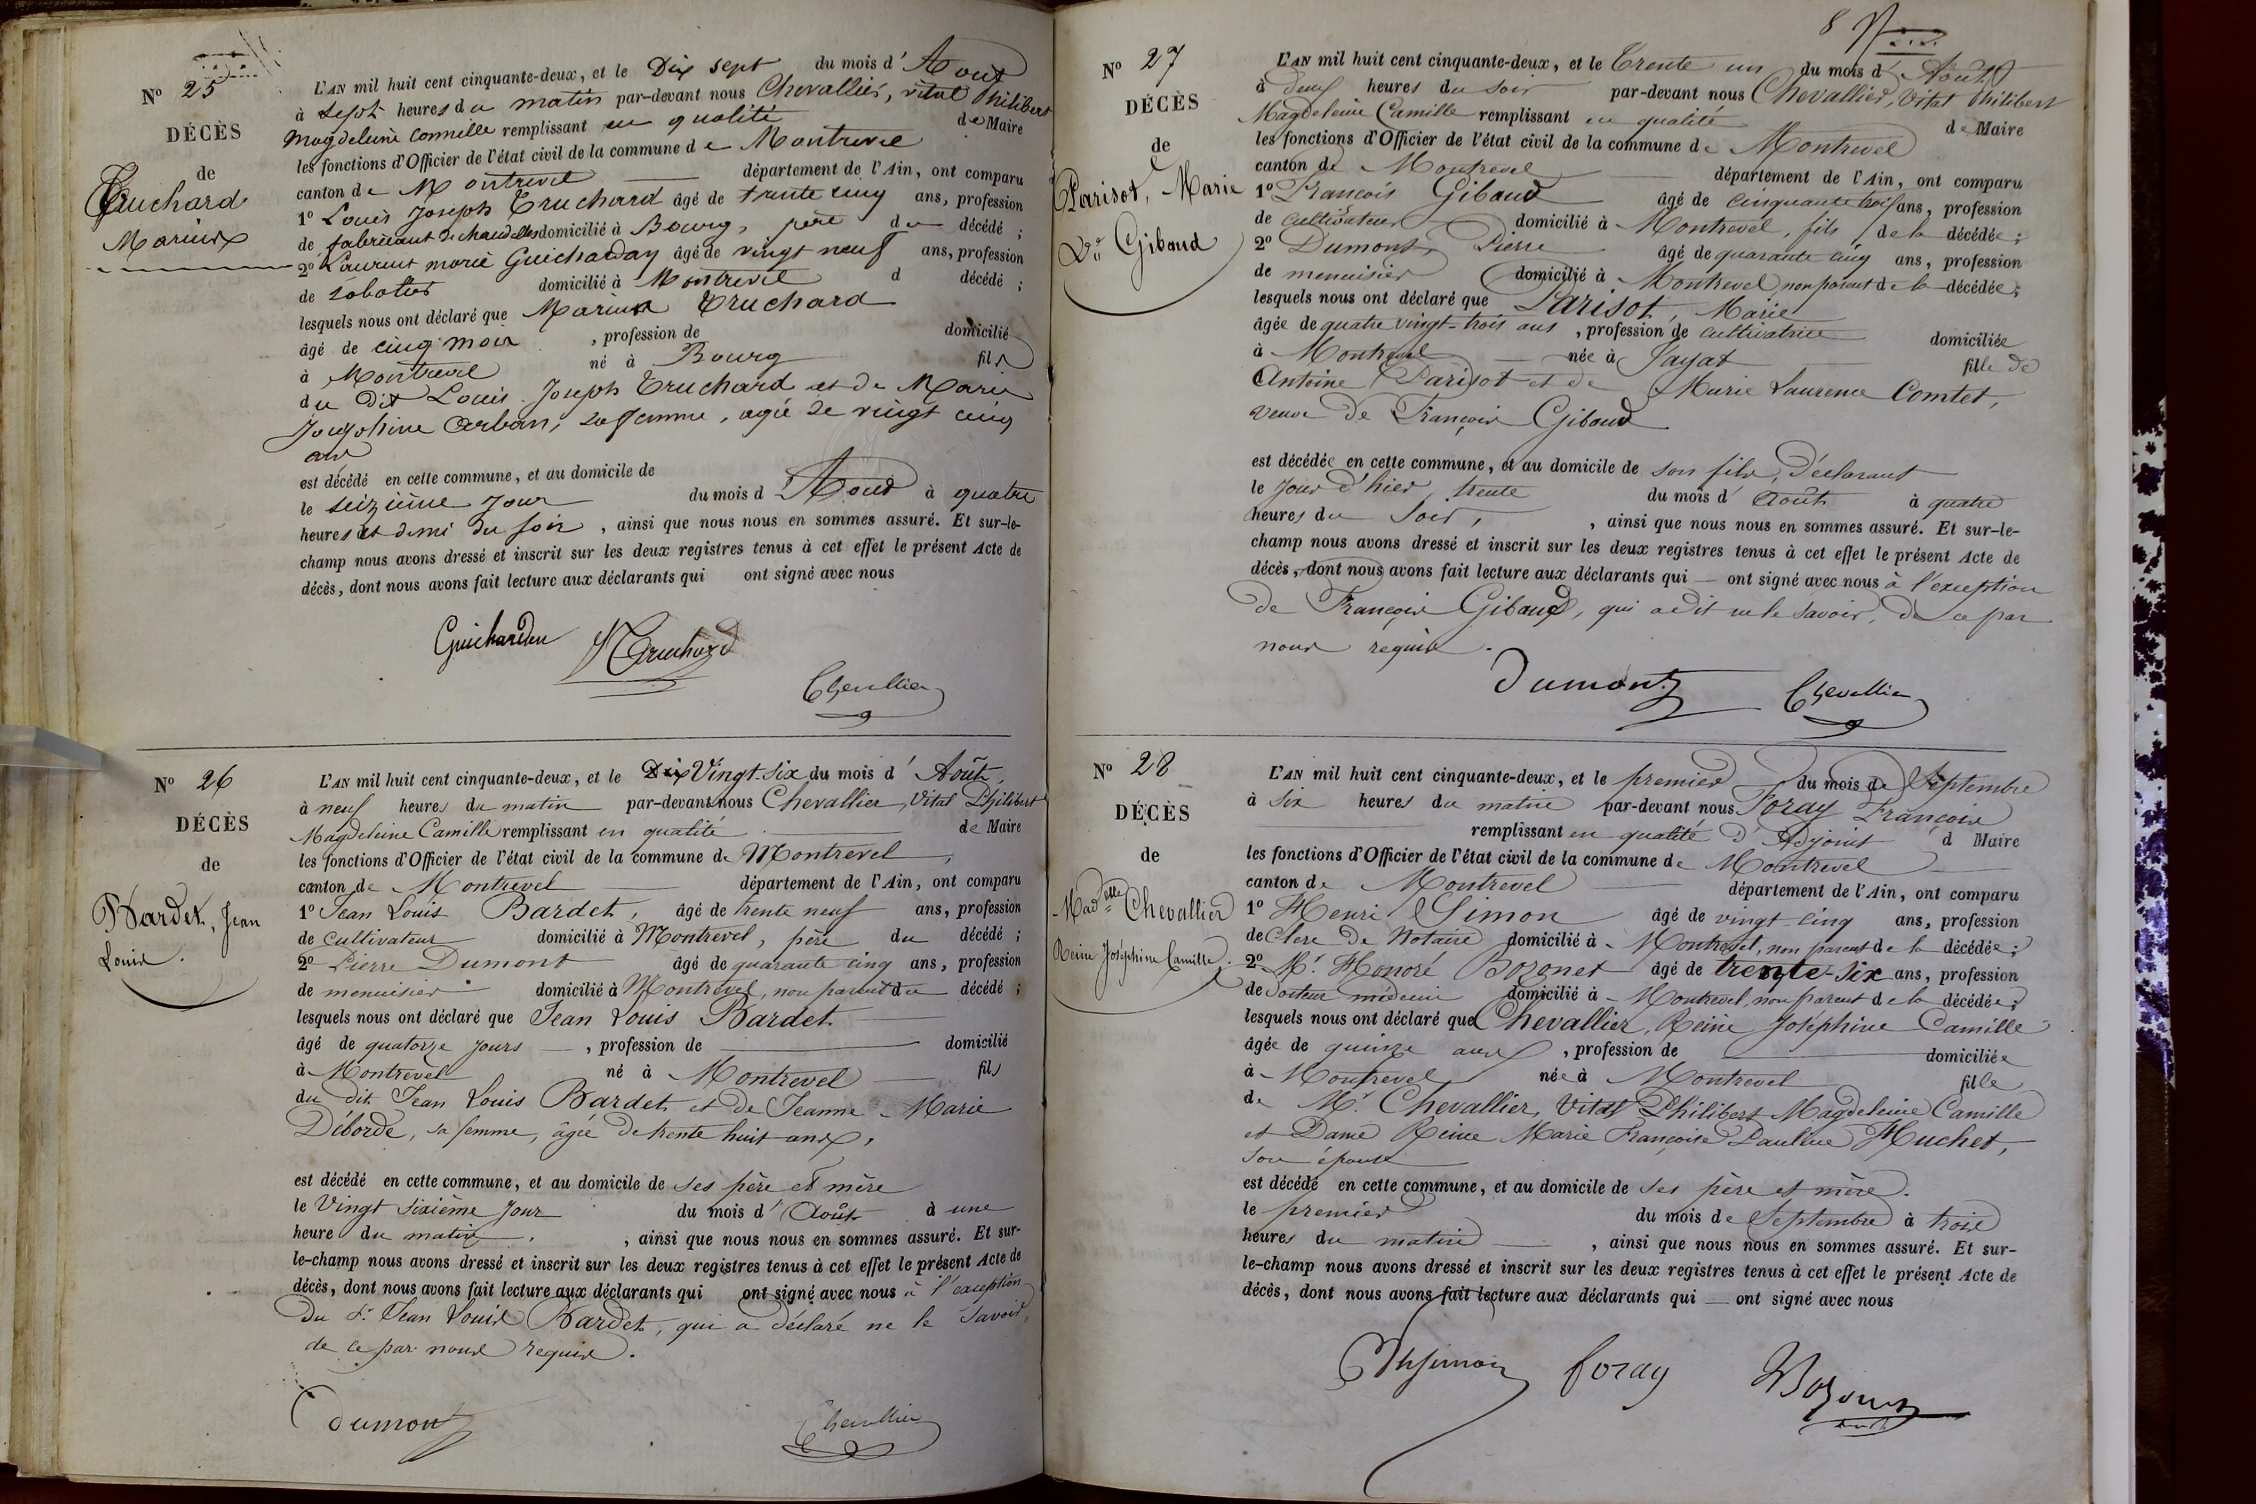 N° 25
DÉCÈS
de
Truchard
Marius
L'AN mil huit cent cinquante-deux, et le Dix sept du mois d'Aout
à sept heures du matin par-devant nous Chevallier, vital Philibert
Magdeleine Camille remplissant en qualité de Maire
les fonctions d'Officier de l'état civil de la commune de Montrevel
canton de Montrevel département de l'Ain, ont comparu
1° Louis Joseph Truchard âgé de trente cinq ans, profession
de fabricant de chandelles domicilié à Bourg, père du décédé ;
2° Laurent marie Guicharday âgé de vingt neuf ans, profession
de sabotier domicilié à Montrevel d décédé ;
lesquels nous ont déclaré que Marius Truchard
âgé de cinq mois, profession de domicilié
à Montrevel né à Bourg fils
du dit Louis Joseph Truchard et de Marie
Josephine Arban, sa femme, agée de vingt cinq
ans
est décédé en cette commune, et au domicile de
le seizième jour du mois d Aout à quatre
heures et demi du soir, ainsi que nous nous en sommes assuré. Et sur-le-
champ nous avons dressé et inscrit sur les deux registres tenus à cet effet le présent Acte de
décès, dont nous avons fait lecture aux déclarants qui ont signé avec nous
Guichardan Truchard
Chevallier
N° 26
DÉCÈS
de
Bardet, Jean
Louis.
L'AN mil huit cent cinquante-deux, et le Dix Vingt-six du mois d'Août,
à neuf heures du matin par-devant nous Chevallier, Vital Philibert
Magdeleine Camille remplissant en qualité de Maire
les fonctions d'Officier de l'état civil de la commune de Montrevel,
canton de Montrevel département de l'Ain, ont comparu
1° Jean Louis Bardet, âgé de trente neuf ans, profession
de cultivateur domicilié à Montrevel, père du décédé ;
2° Pierre Dumont âgé de quarante cinq ans, profession
de menuisier domicilié à Montrevel, non parent du décédé ;
lesquels nous ont déclaré que Jean Louis Bardet
âgé de quatorze jours, profession de domicilié
à Montrevel né à Montrevel fils
du dit Jean Louis Bardet et de Jeanne-Marie
Déborde, sa femme, âgée de trente huit ans,
est décédé en cette commune, et au domicile de ses père et mère
le Vingt sixième Jour du mois d'Août à une
heure du matin, ainsi que nous nous en sommes assuré. Et sur-
le-champ nous avons dressé et inscrit sur les deux registres tenus à cet effet le présent Acte de
décès, dont nous avons fait lecture aux déclarants qui ont signé avec nous à l'exception
du Sr Jean Louis Bardet, qui a déclaré ne le savoir,
de ce par nous requis.
dumont Chevallier
8
N° 27
DÉCÈS
de
Parisot, Marie
Ve Gibaud
L'AN mil huit cent cinquante-deux, et le Trente un du mois d'Août
à deux heures du soir par-devant nous Chevallier, Vital Philibert
Magdeleine Camille remplissant en qualité de Maire
les fonctions d'Officier de l'état civil de la commune de Montrevel
canton de Montrevel département de l'Ain, ont comparu
1° François Gibaud âgé de cinquante trois ans, profession
de cultivateur domicilié à Montrevel, fils de la décédée ;
2° Dumont, Pierre âgé de quarante cinq ans, profession
de menuisier domicilié à Montrevel non parent de la décédée ;
lesquels nous ont déclaré que Parisot, Marie
âgée de quatre vingt-trois ans, profession de cultivatrice domiciliée
à Montrevel née à Jayat fille de
Antoine Parisot et de Marie Laurence Comtet,
veuve de François Gibaud
est décédée en cette commune, et au domicile de son fils, déclarant
le Jour d'hier, trente du mois d'août à quatre
heures du soir, ainsi que nous nous en sommes assuré. Et sur-le-
champ nous avons dressé et inscrit sur les deux registres tenus à cet effet le présent Acte de
décès, dont nous avons fait lecture aux déclarants qui ont signé avec nous à l'exception
de François Gibaud, qui a dit ne le savoir, de ce par
nous requis.
Dumont Chevallier
N° 28
DÉCÈS
de
Madelle Chevallier
Reine Joséphine Camille.
L'AN mil huit cent cinquante-deux, et le premier du mois de Septembre
à six heures du matin par-devant nous Foray François
remplissant en qualité d'Adjoint d Maire
les fonctions d'Officier de l'état civil de la commune de Montrevel
canton de Montrevel département de l'Ain, ont comparu
1° Henri Simon âgé de vingt-cinq ans, profession
de Clerc de Notaire domicilié à Montrevel, non parent de la décédée ;
2° Mr. Honoré Bozonet âgé de trente-six ans, profession
de Docteur médecin domicilié à Montrevel, non parent de la décédée ;
lesquels nous ont déclaré que Chevallier, Reine Joséphine Camille
âgée de quinze ans, profession de domiciliée
à Montrevel née à Montrevel fille
de Mr. Chevallier, Vital Philibert Magdeleine Camille
et Dame Reine Marie Françoise Pauline Huchet,
son épouse
est décédé en cette commune, et au domicile de ses père et mère.
le premier du mois de Septembre à trois
heures du matin, ainsi que nous nous en sommes assuré. Et sur-
le-champ nous avons dressé et inscrit sur les deux registres tenus à cet effet le présent Acte de
décès, dont nous avons fait lecture aux déclarants qui ont signé avec nous
hsimon foray Bozonet